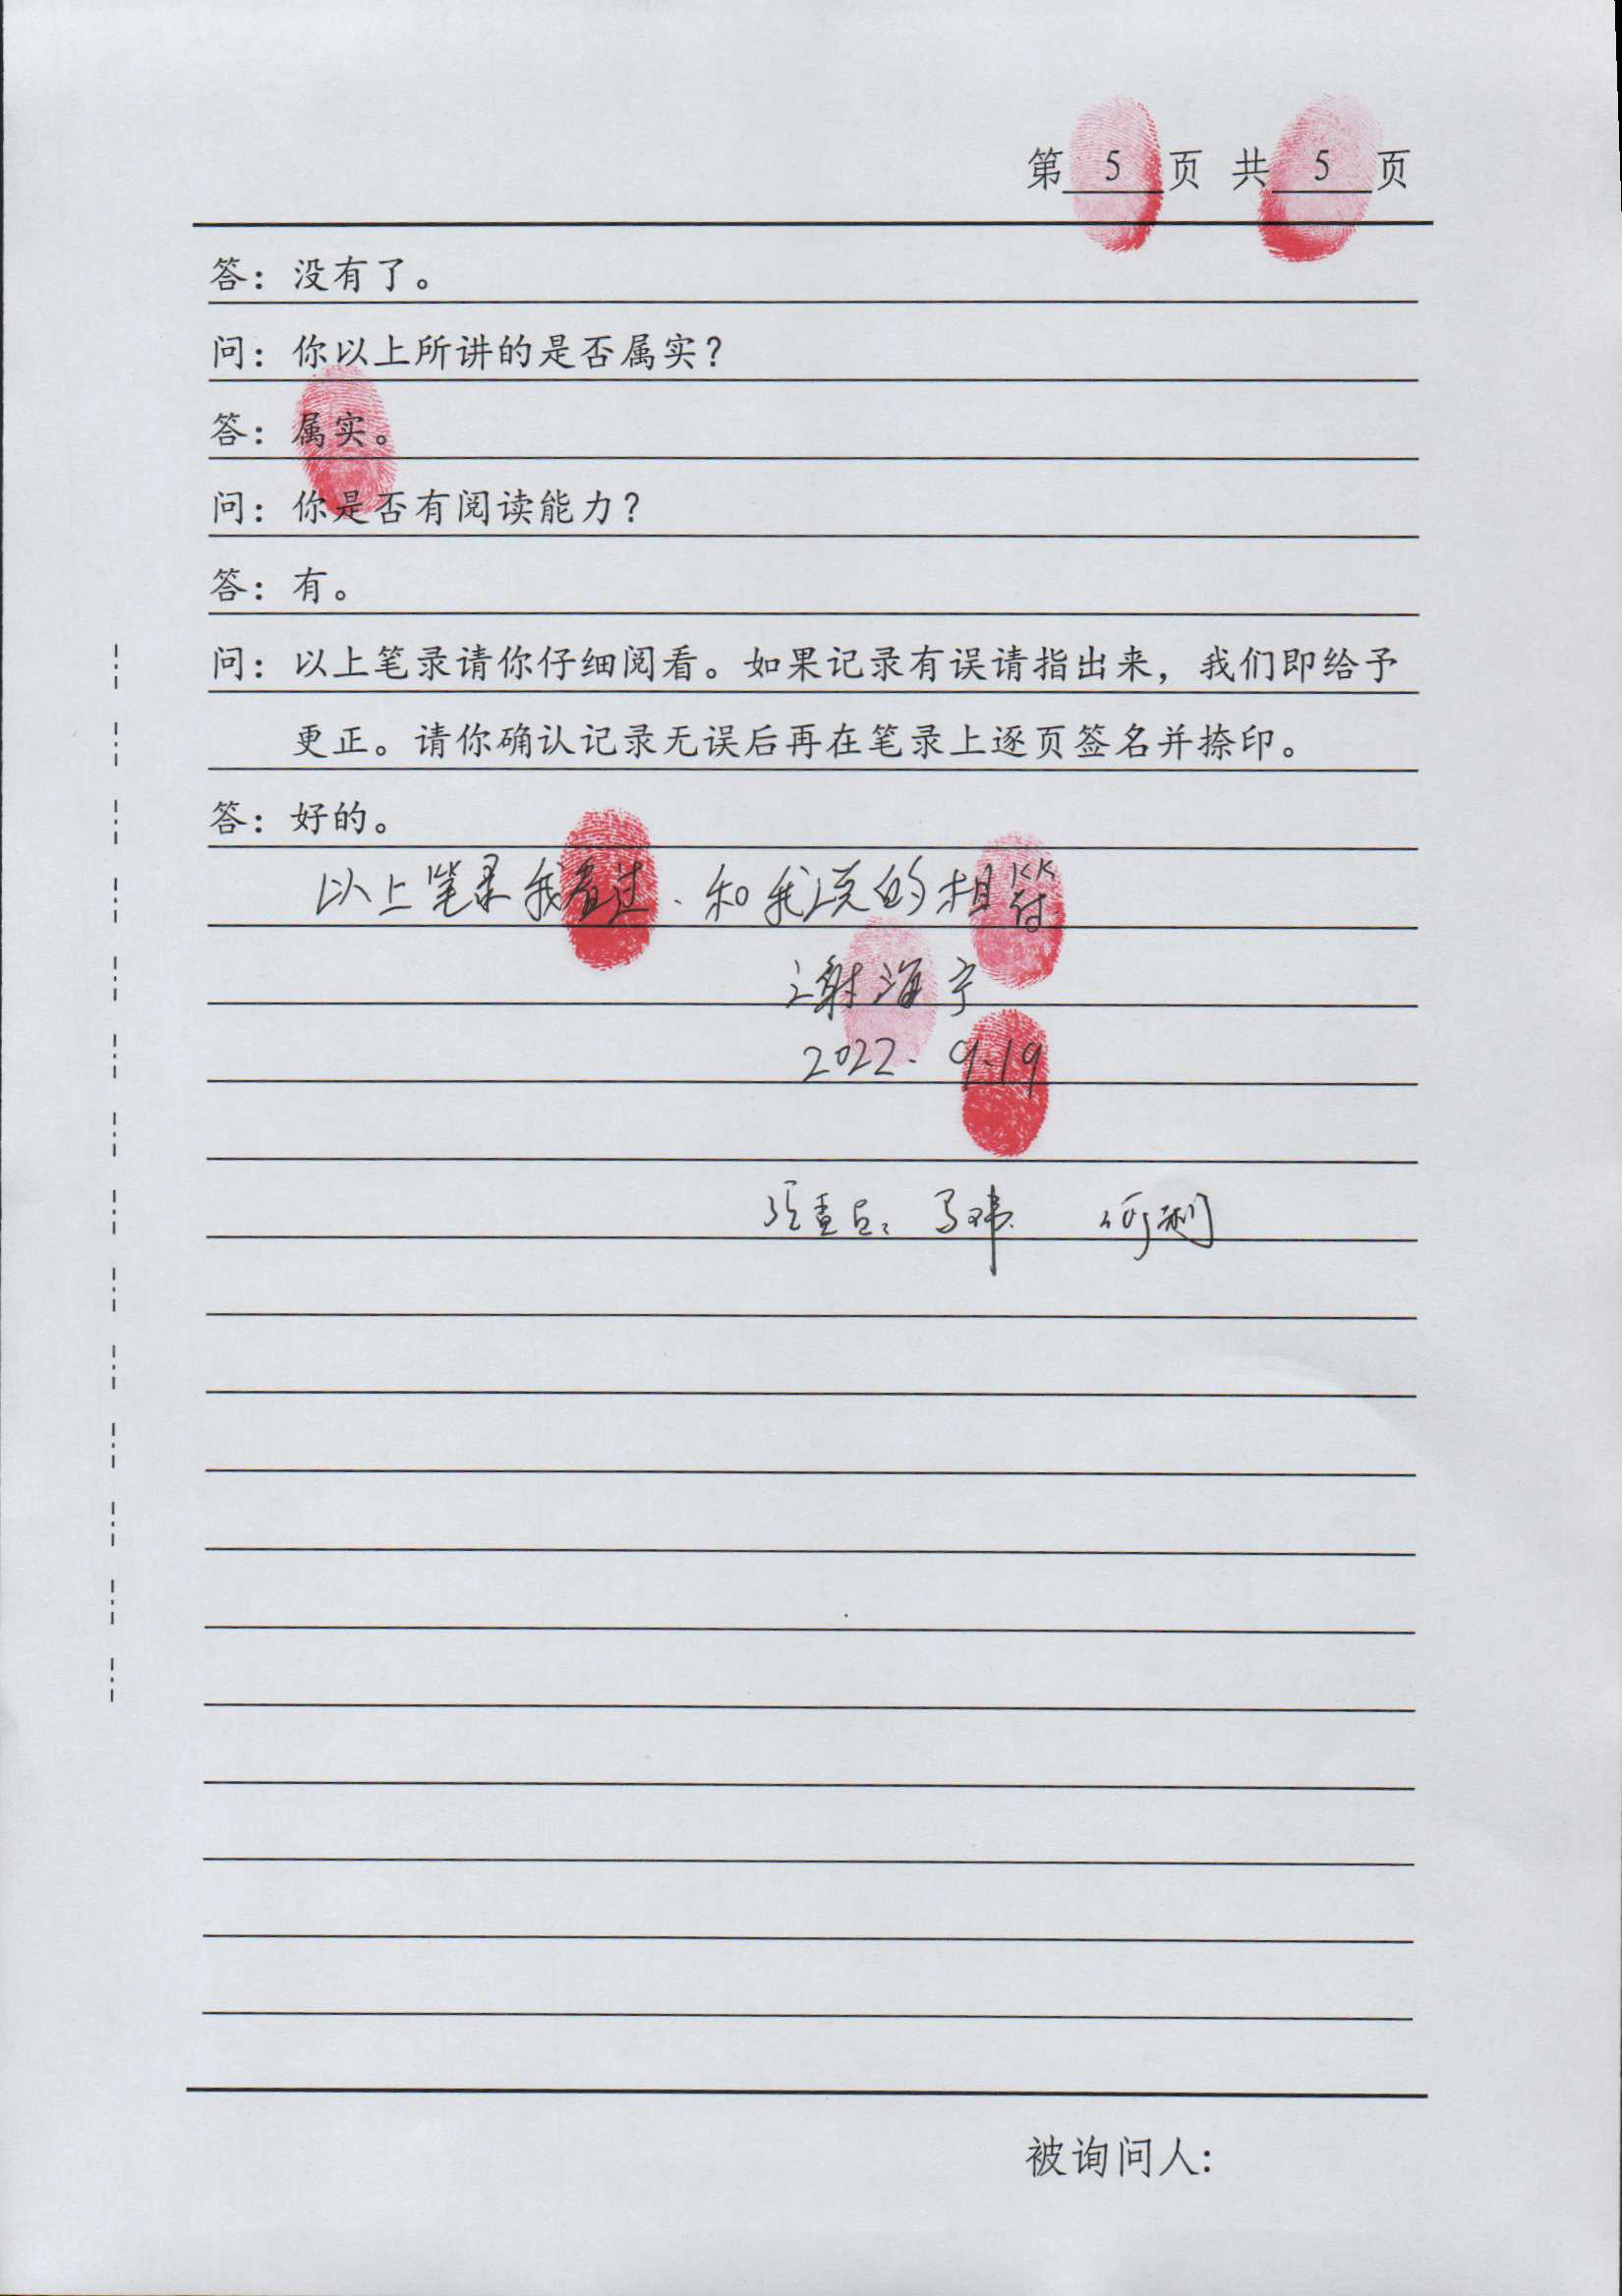 第 5 页 共 5 页
答：没有了。
问：你以上所讲的是否属实？
答：属实。
问：你是否有阅读能力？
答：有。
问：以上笔录请你仔细阅看。如果记录有误请指出来，我们即给予
更正。请你确认记录无误后再在笔录上逐页签名并捺印。
答：好的。
以上笔录我看过、和我说的相符.
谢海宁
2022. 9.19
马
被询问人：